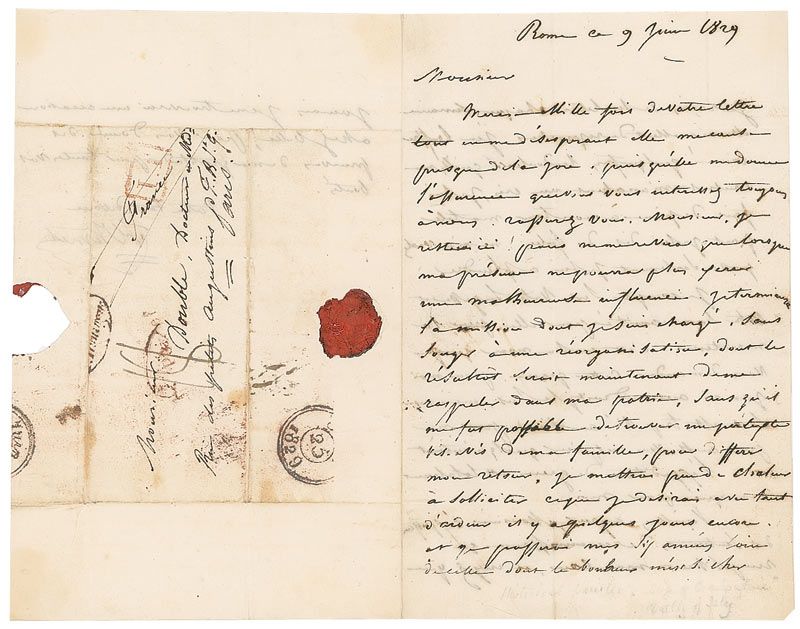 Rome ce 9 Juin 1829
Monsieur
Merci Mille fois de votre lettre
tout en me désespérant elle me cause
presque de la joie, puisqu'elle me donne
l'assurance que vous vous intéressez toujours
à nous. rassurez vous, Monsieur, je
resterai ici! Paris ne me reverra que lorsque
ma présence ne pourra plus exercer
une malheureuse influence. je terminerai
la mission dont je suis chargé, sans
songer à une réorganisation, dont le
résultat serait maintenant de me
rappeler dans ma patrie, sans qu'il
me fut possible de trouver un prétexte
vis à vis de ma famille, pour différer
mon retour. je mettrai peu de chaleur
à solliciter ce que je désirais avec tant
d'ardeur il y a quelques jours encore.
et je passerai mes années loin
de celle dont le bonheur m'est si cher
France
Monsieur
Double, Docteur M
Rue des petits augustins
Paris
25
1829